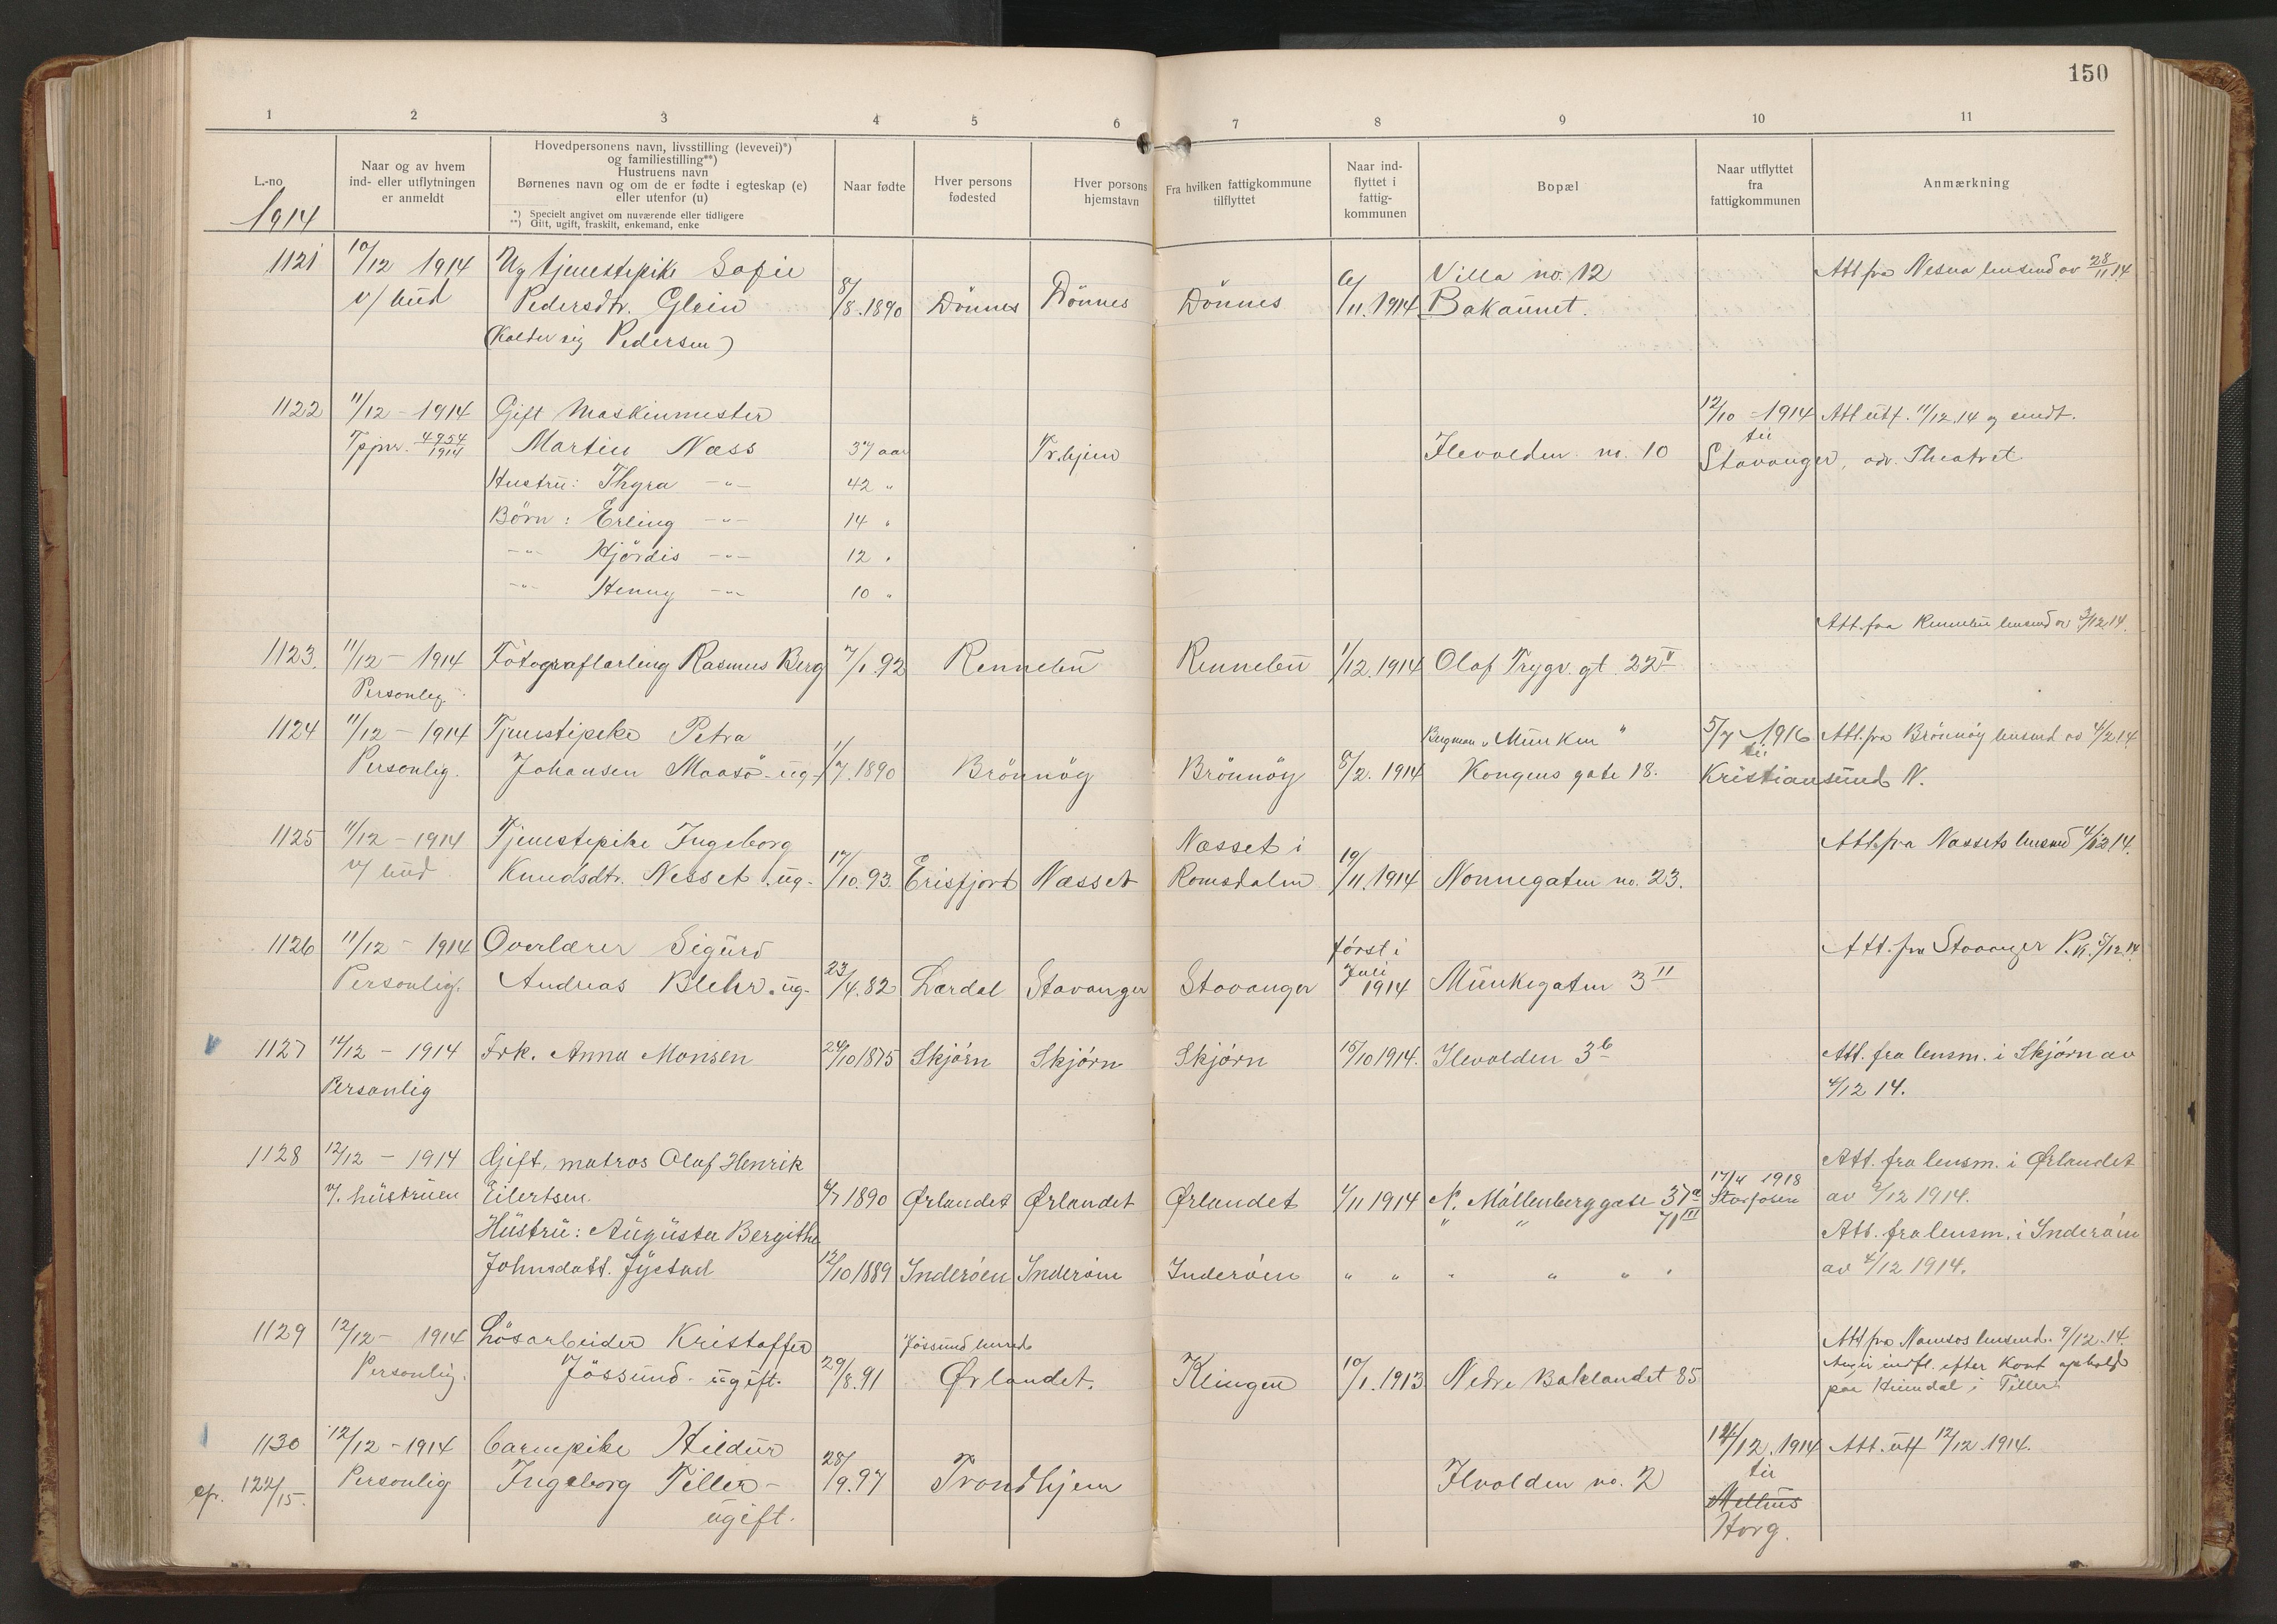 150
1 2 3 4 5 6 7 8 9 10 11
L.-no
1914
Naar og av hvem
ind- eller utflytningen
er anmeldt
Hovedpersonens navn, livsstilling (levevei)*)
og familiestilling**)
Hustruens navn
Børnenes navn og om de er fødte i egteskap (e)
eller utenfor (u)
*) Specielt angivet om nuværende eller tidligere
**) Gift, ugift, fraskilt, enkemand, enke
Naar fødte
Hver persons
fødested
Hver porsons
hjemstavn
Fra hvilken fattigkommune
tilflyttet
Naar ind-
flyttet i
fattig-
kommunen
Bopæl
Naar utflyttet
fra
fattigkommunen
Anmærkning
1121 10/12 1914 Ug tjenestepike Sofie Villa no. 12 Att fra Nesna lensmd av 28/11 14
v/ bud Pedersdtr. Glein 8/8.1890 Dönnes Dönnes Dönnes 6/11.1914 Bakaunet.
(Kalder sig Pedersen)
1122 11/12 - 1914 Gift Maskinmester 12/10 - 1914 Att utf. 11/12.14 og sendt.
Tpjnr. 4954/1914 Martin Næss 37 aar Tr.hjem Ilevolden no. 10 til Stavanger, adr. Theatret
Hustru: Thyra -"- 42 "
Börn: Erling -"- 14 "
-"- Hjördis -"- 12 "
-"- Henny -"- 10 "
Att. fra Rennebu lensmd av 3/12.14.
1123. 11/12 - 1914 Fotograflærling Rasmus Berg 7/1.92 Rennebu Rennebu 1/12.1914 Olaf Trygv. gt. 22 V
Personlig.
1124 11/12 - 1914 Tjenestepike Petra Bergman "Munken" 5/7 - 1916 Att. fra Brönnöy lensmd av 4/12 14
Personlig. Johansen Maasö - ug - 1/7.1890 Brönnöy Brönnöy 8/2.1914 Kongens gate 18. til Kristiansund N.
1125 11/12 - 1914 Tjenestepike Ingeborg Næsset i Att. fra Næssets lensmd 4/12 14.
v/ bud Knudsdtr. Nesset - ug - 17/10.93. Erisfjord Næsset Romsdalen 19/11.1914 Nonnegaten no. 23.
1126 11/12 - 1914 Overlærer Sigurd först i Att. fra Stavanger P.k. 5/12.14.
Personlig. Andreas Blehr - ug - 23/4.82 Lærdal Stavanger Stavanger Juli 1914 Munkegaten 3 II
1127 12/12 - 1914 Frk. Anna Monsen 24/10 1875 Skjörn Skjörn Skjörn 15/10 1914. Ilevolden 3b Att. fra lensm. i Skjörn av
Personlig 4/12 14.
1128 12/12 - 1914 Gift, matros Olaf Henrik Att. fra lensm. i Ørlandet
v. hustruen Eilertsen 4/7 1890 Ørlandet Ørlandet Ørlandet 4/11 1914 N. Möllenberggate 37a 17/4 1918 Storfosen av 2/12 1914.
Hustru: Augusta Bergithe " " 71 III Att. fra lensm. i Inderöen
Johnsdatt. Jystad 12/10 1889 Inderöen Inderöen Inderöen " " " " " " av 4/12 1914.
1129 12/12 - 1914 Lösarbeider Kristoffer Jössund herred Att fra Namsos lensmd. 9/12.14
Personlig. Jössund - ugift. 29/8.91 Ørlandet. Klingen 10/1.1913 Nedre Baklandet 85 Ang. indfl. efter kort ophold
paa Heimdal i Tiller.
1130 12/12 - 1914 Barnepike Hildur 14/12.1914 Att. utf 12/12.1914.
cfr. 122/15. Personlig Ingeborg Tiller - 28/9.97 Trondhjem Ilvolden no. 2 til
ugift. Melhus
Horg.